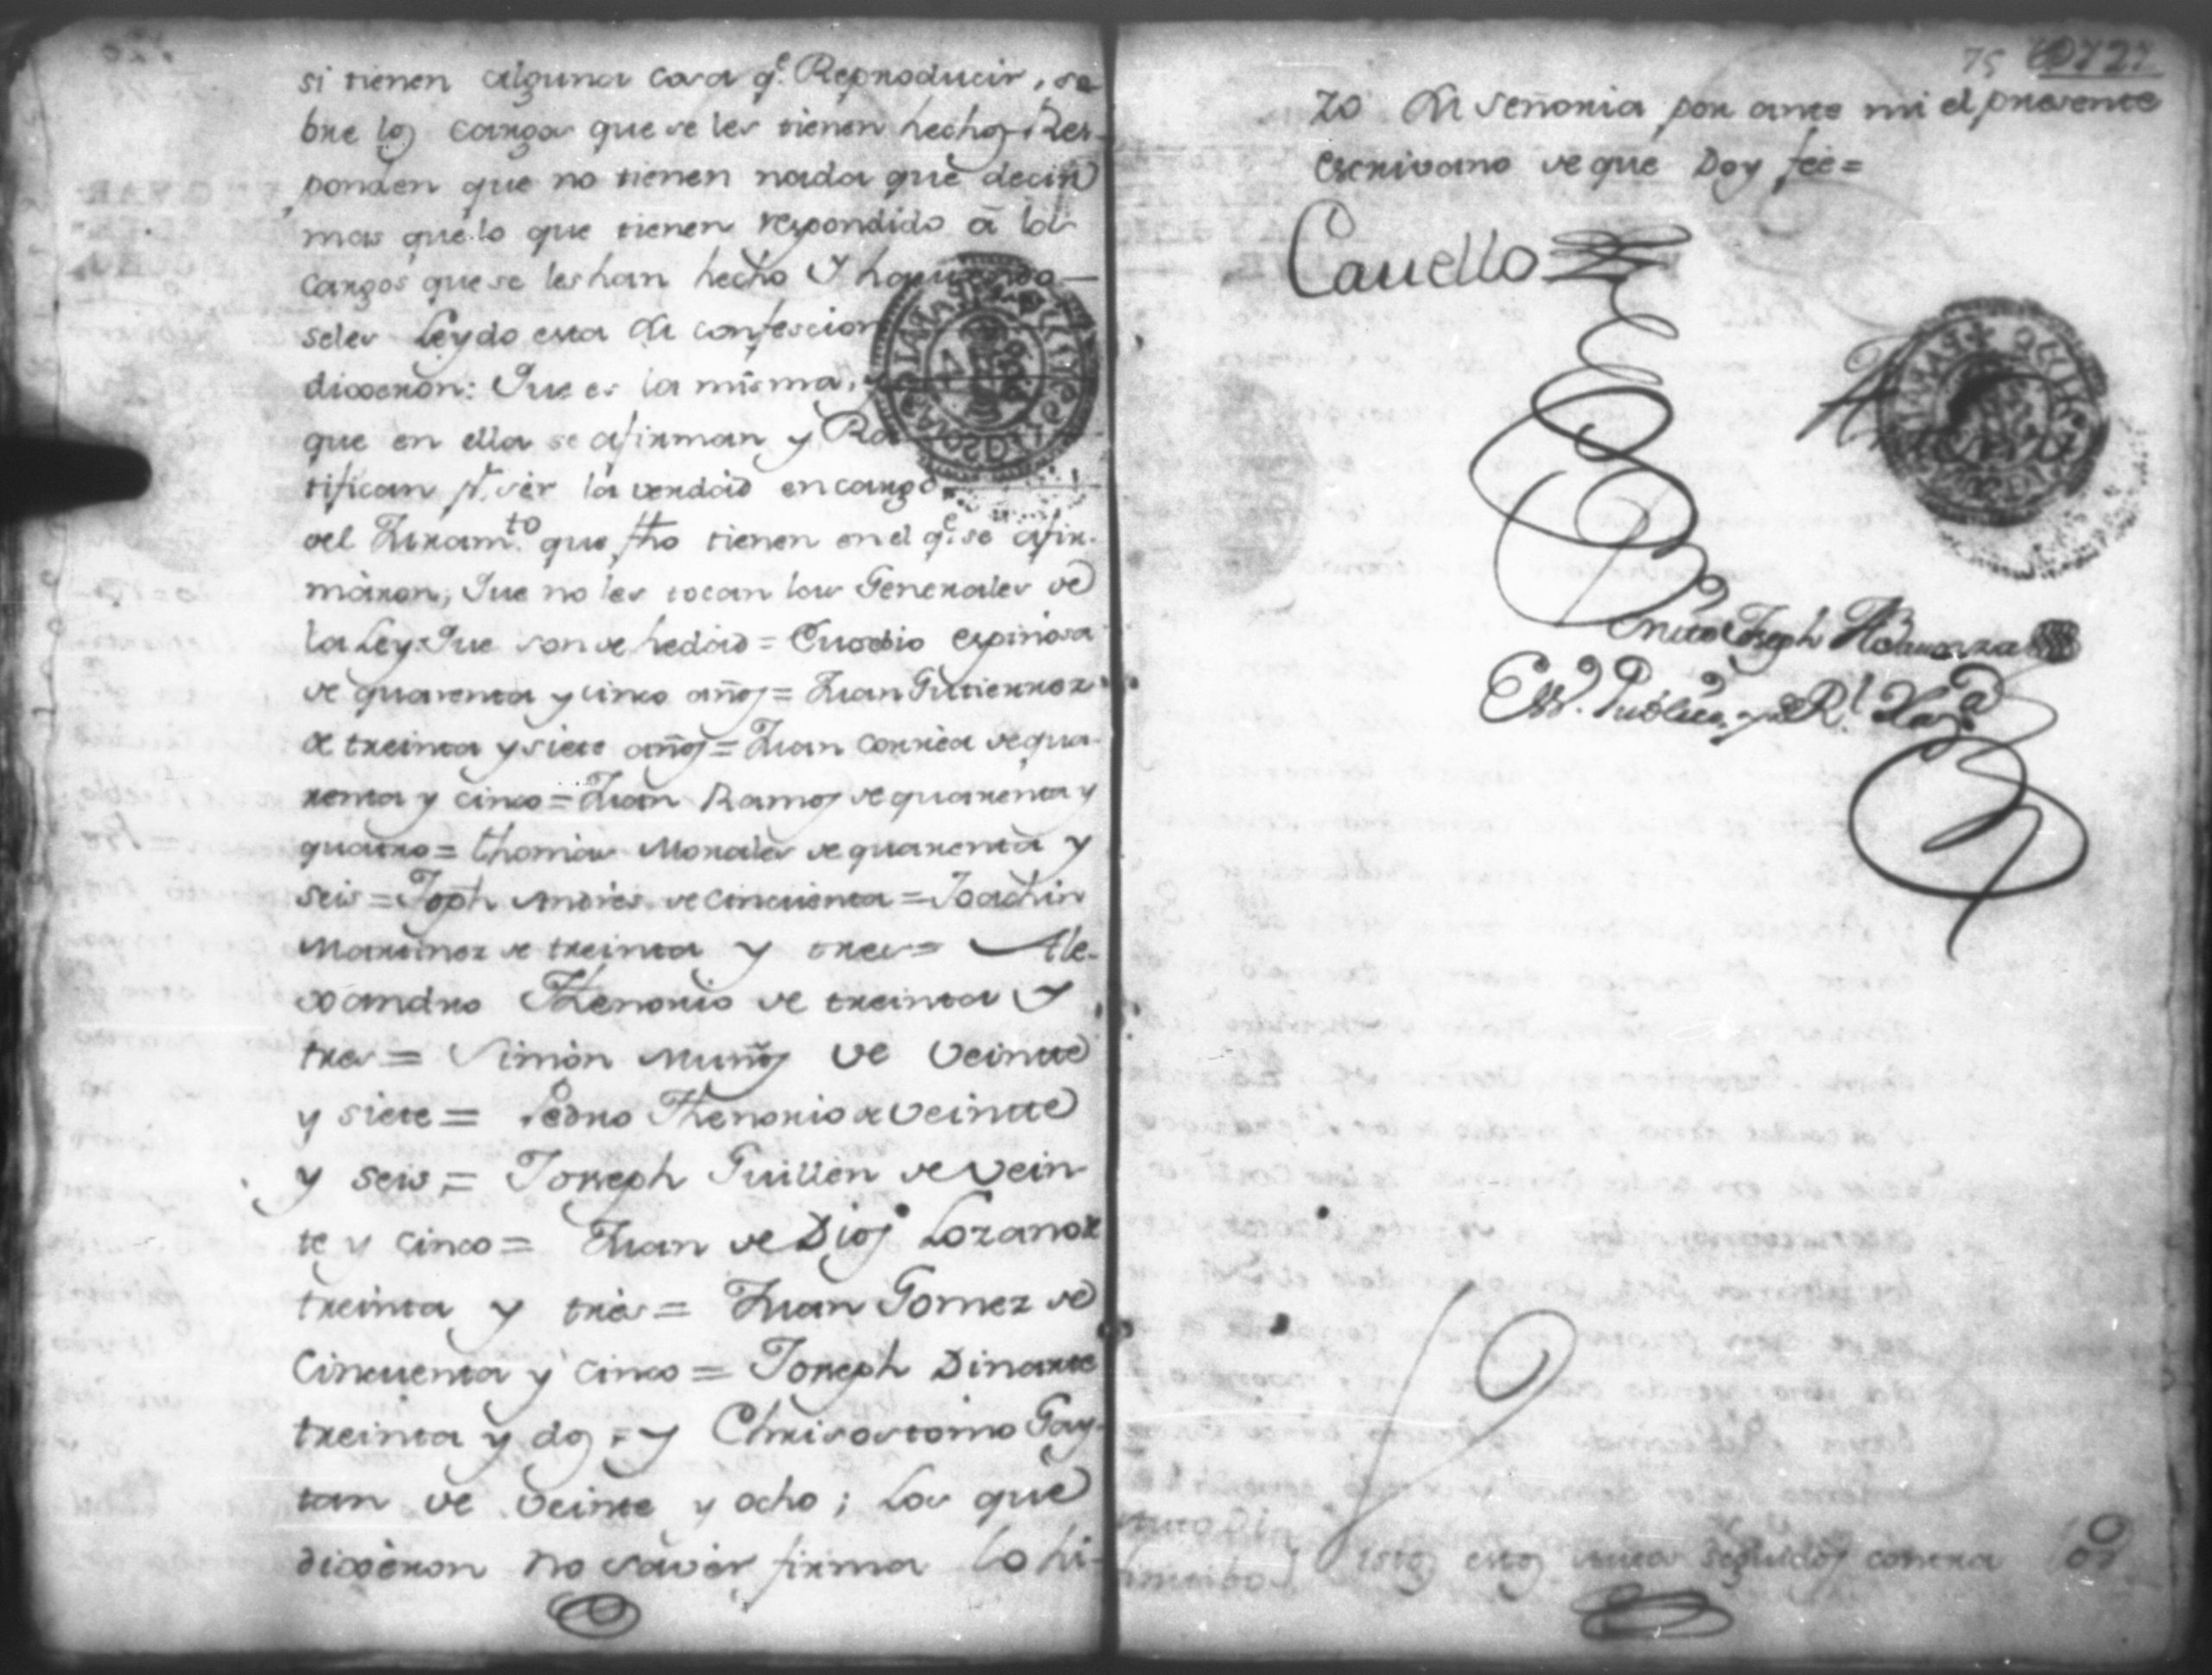 si tienen alguna cosa q.e Reproducir, so
bre los cargos que se les tienen hechos Res-
ponden que no tienen nada que decir
mas que lo que tienen respondido â los
cargos que se les han hecho Y haviendo
seles Leydo esta su confescion
dixeron: Que es la misma,
que en ella se afirman y Ra
tifican p.r ser la verdad en cargo
del Juram.to que fho tienen en el q.e se afir-
màron, Que no les tocan las Generales de
la Ley: Que son de hedad = Eusebio espinosa
de quarenta y cinco años = Juan Gutierrez
de treinta y siete años = Juan Corrèa de qua-
renta y cinco = Juan Ramos de quarenta y
quatro = thomas Morales de quarenta y
seis = Joph Andrès de cincuenta = Joachin
Martinez de treinta y tres = Ale-
xandro Thenorio de treinta y
tres = Simòn Muños de veinte
y siete = Pedro Thenorio de veinte
y seis = Joseph Guillèn de vein
te y cinco = Juan de Dios Lozano de
treinta y très = Juan Gomez de
Cincuenta y cinco = Joseph Dinarte
treinta y dos = y Chrisostomo Gay-
tan de veinte y ocho; Los que
dixèron no savèr firma lo hi-
75 727
zo su señoria por ante mi el presente
escrivano de que Doy fee =
Cavello
Ante mi
Joseph
Ess.no Publico y de R.l Haz.da
estos seguidos contra